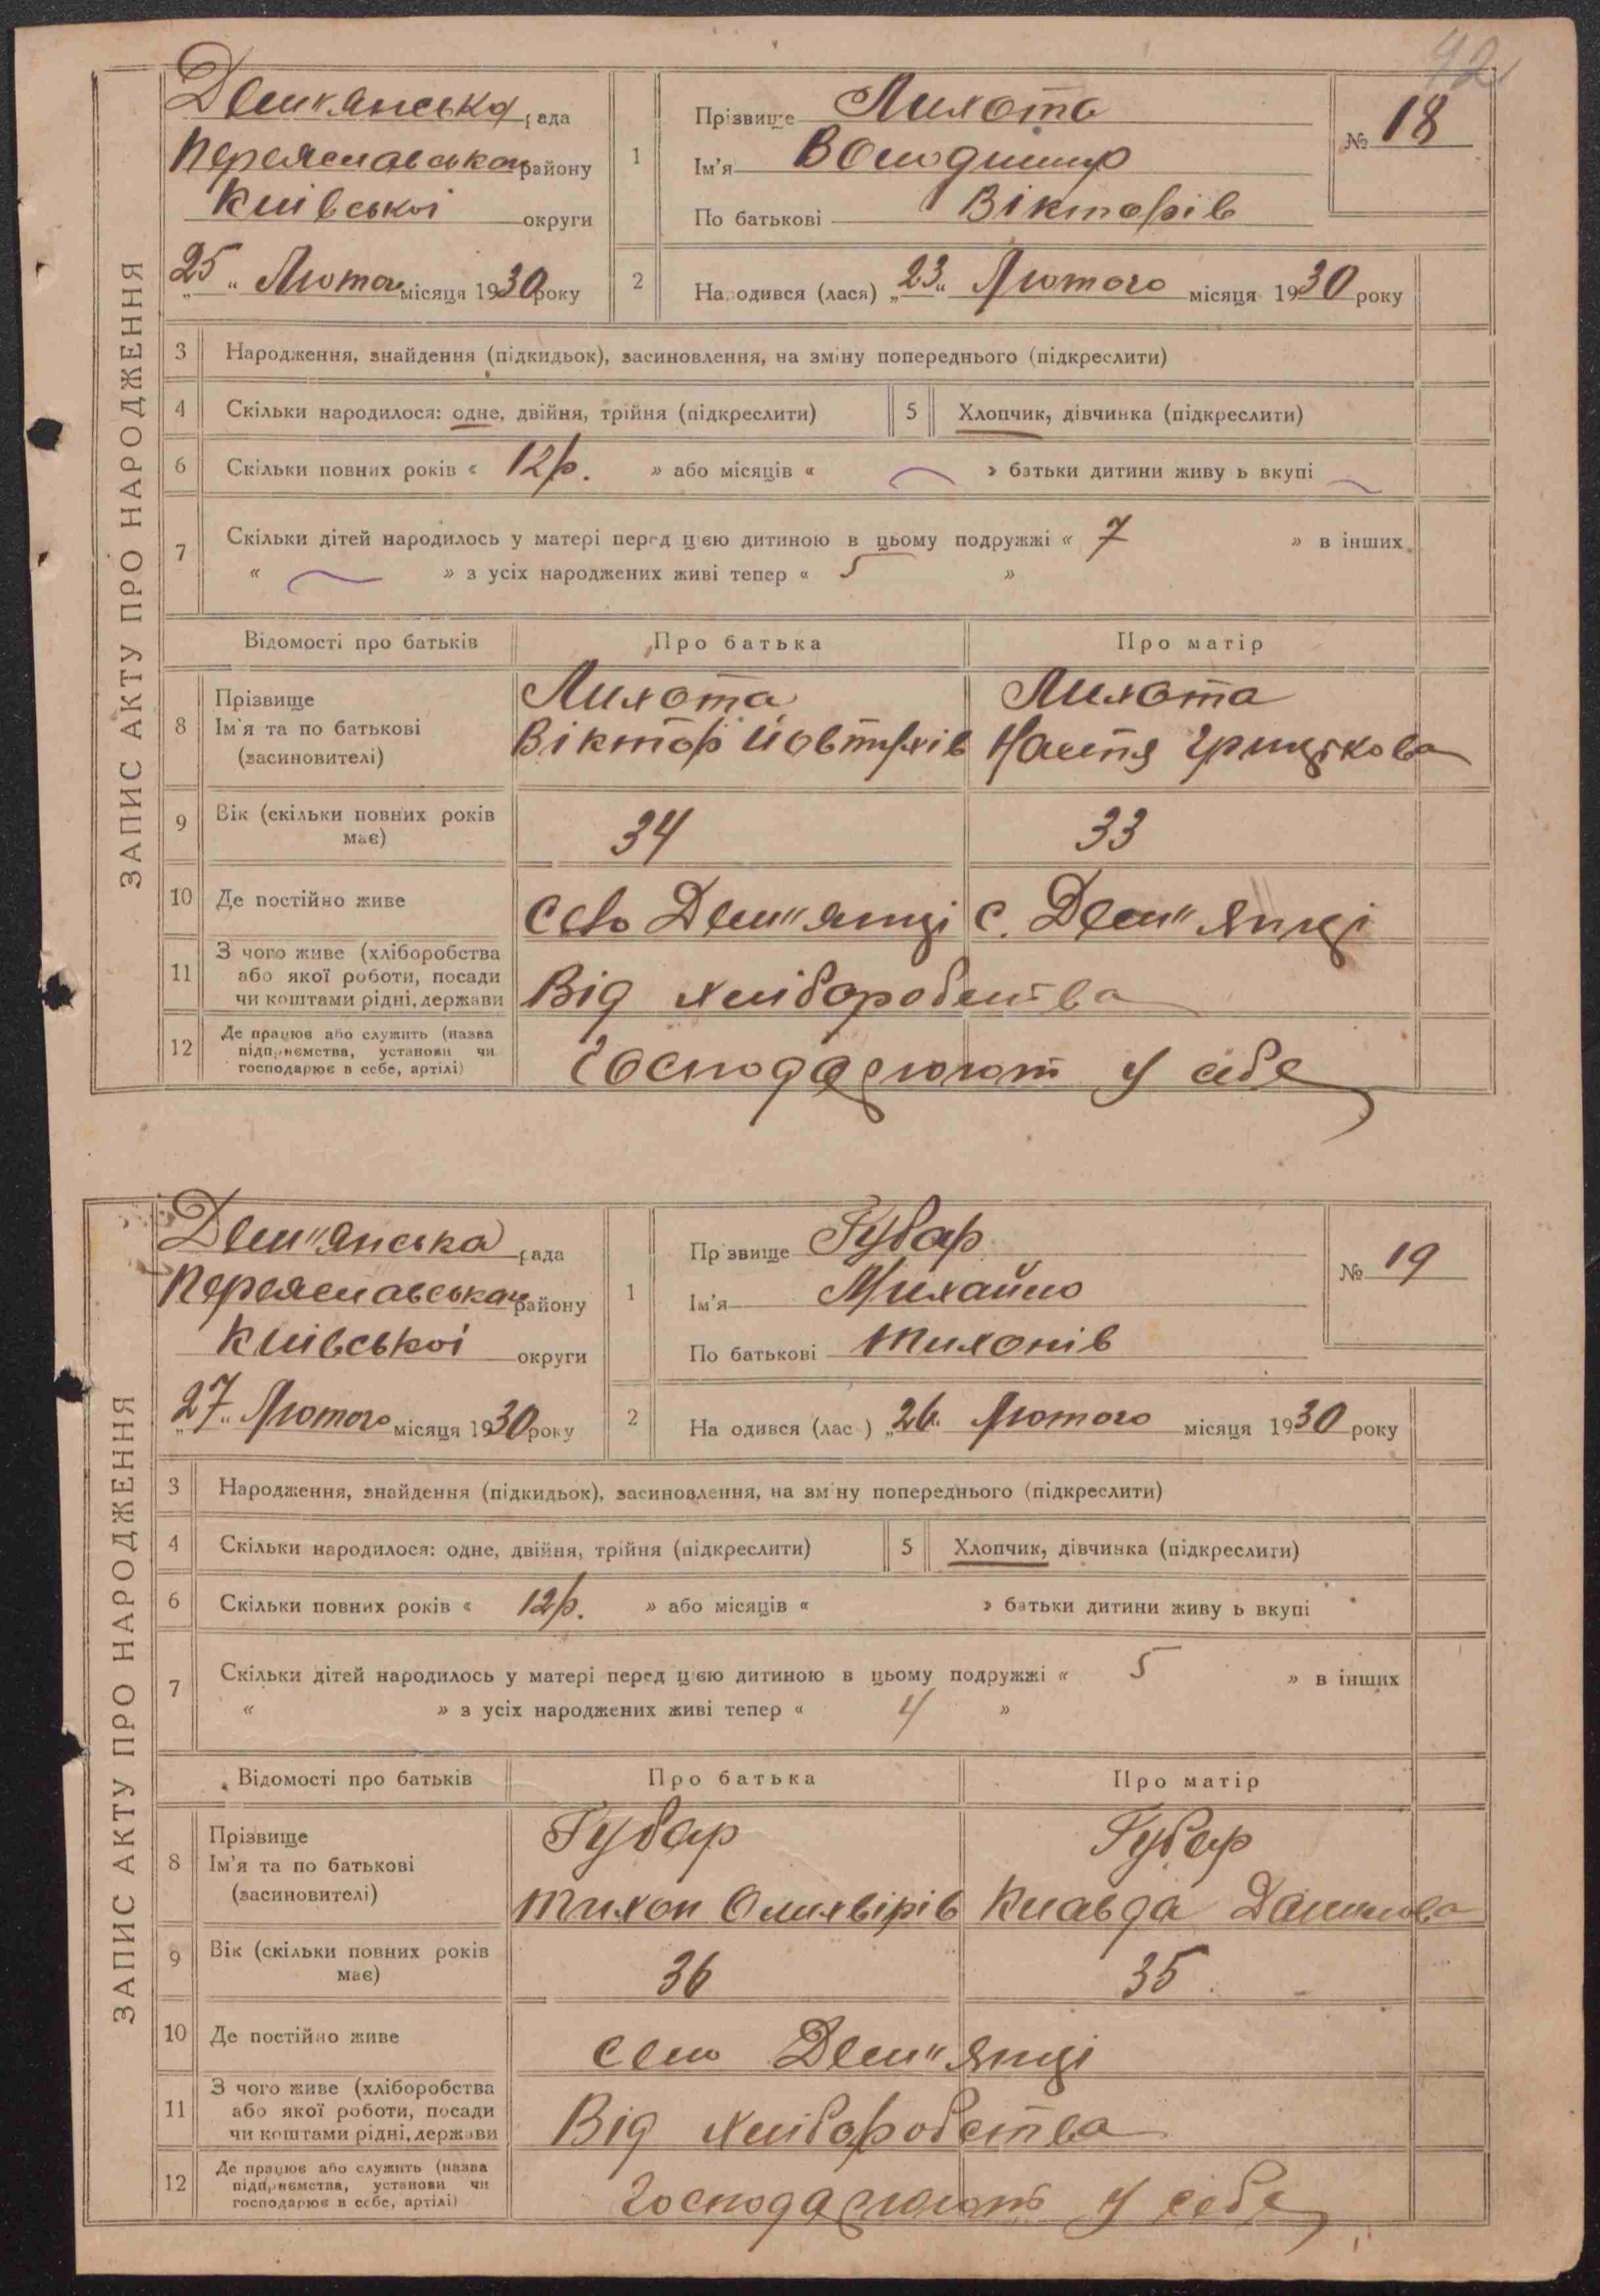 42
ЗАПИС АКТУ ПРО НАРОДЖЕННЯ
Дем'янська рада
Переяславського району
Київської округи
„25“ Лютого місяця 1930 року
1
Прізвище Лихота
Ім'я Володимир
По батькові Вікторів
№ 18
2
Народився (лася) „23“ Лютого місяця 1930 року
3 Народження, знайдення (підкидьок), засиновлення, на зміну попереднього (підкреслити)
4 Скільки народилося: одне, двійня, трійня (підкреслити)
5 Хлопчик, дівчинка (підкреслити)
6 Скільки повних років « 12 р. » або місяців « » батьки дитини живу ь вкупі
7 Скільки дітей народилось у матері перед цією дитиною в цьому подружжі « 7 » в інших
« » з усіх народжених живі тепер « 5 »
Відомості про батьків Про батька Про матір
8
Прізвище Лихота Лихота
Ім'я та по батькові Віктор Настя
(засиновителі)
9 Вік (скільки повних років 34 33
має)
10 Де постійно живе Село Дем"янці с. Дем"янці
11 З чого живе (хліборобства
або якої роботи, посади
чи коштами рідні, держави Від хліборобства
12 Де працює або служить (назва
підприємства, установи чи
господарює в себе, артілі) Господарюют у себе
ЗАПИС АКТУ ПРО НАРОДЖЕННЯ
Дем"янська рада
Переяславського району
Київської округи
„27“ Лютого місяця 1930 року
1
Пр звище Губар
Ім'я Михайло
По батькові Тихонів
№ 19
2
На одився (лас ) „26“ Лютого місяця 1930 року
3 Народження, знайдення (підкидьок), засиновлення, на зміну попереднього (підкреслити)
4 Скільки народилося: одне, двійня, трійня (підкреслити)
5 Хлопчик, дівчинка (підкреслити)
6 Скільки повних років « 12 р. » або місяців « » батьки дитини живу ь вкупі
7 Скільки дітей народилось у матері перед цією дитиною в цьому подружжі « 5 » в інших
« » з усіх народжених живі тепер « 4 »
Відомості про батьків Про батька Про матір
8
Прізвище Губар Губар
Ім'я та по батькові
(засиновителі) Тихон Олихвірів Клавда Данилова
9 Вік (скільки повних років 36 35
має)
10 Де постійно живе село Дем"янці
11 З чого живе (хліборобства
або якої роботи, посади
чи коштами рідні, держави Від хліборобства
12 Де працює або служить (назва
підприємства, установи чи
господарює в себе, артілі) Господарюють у себе